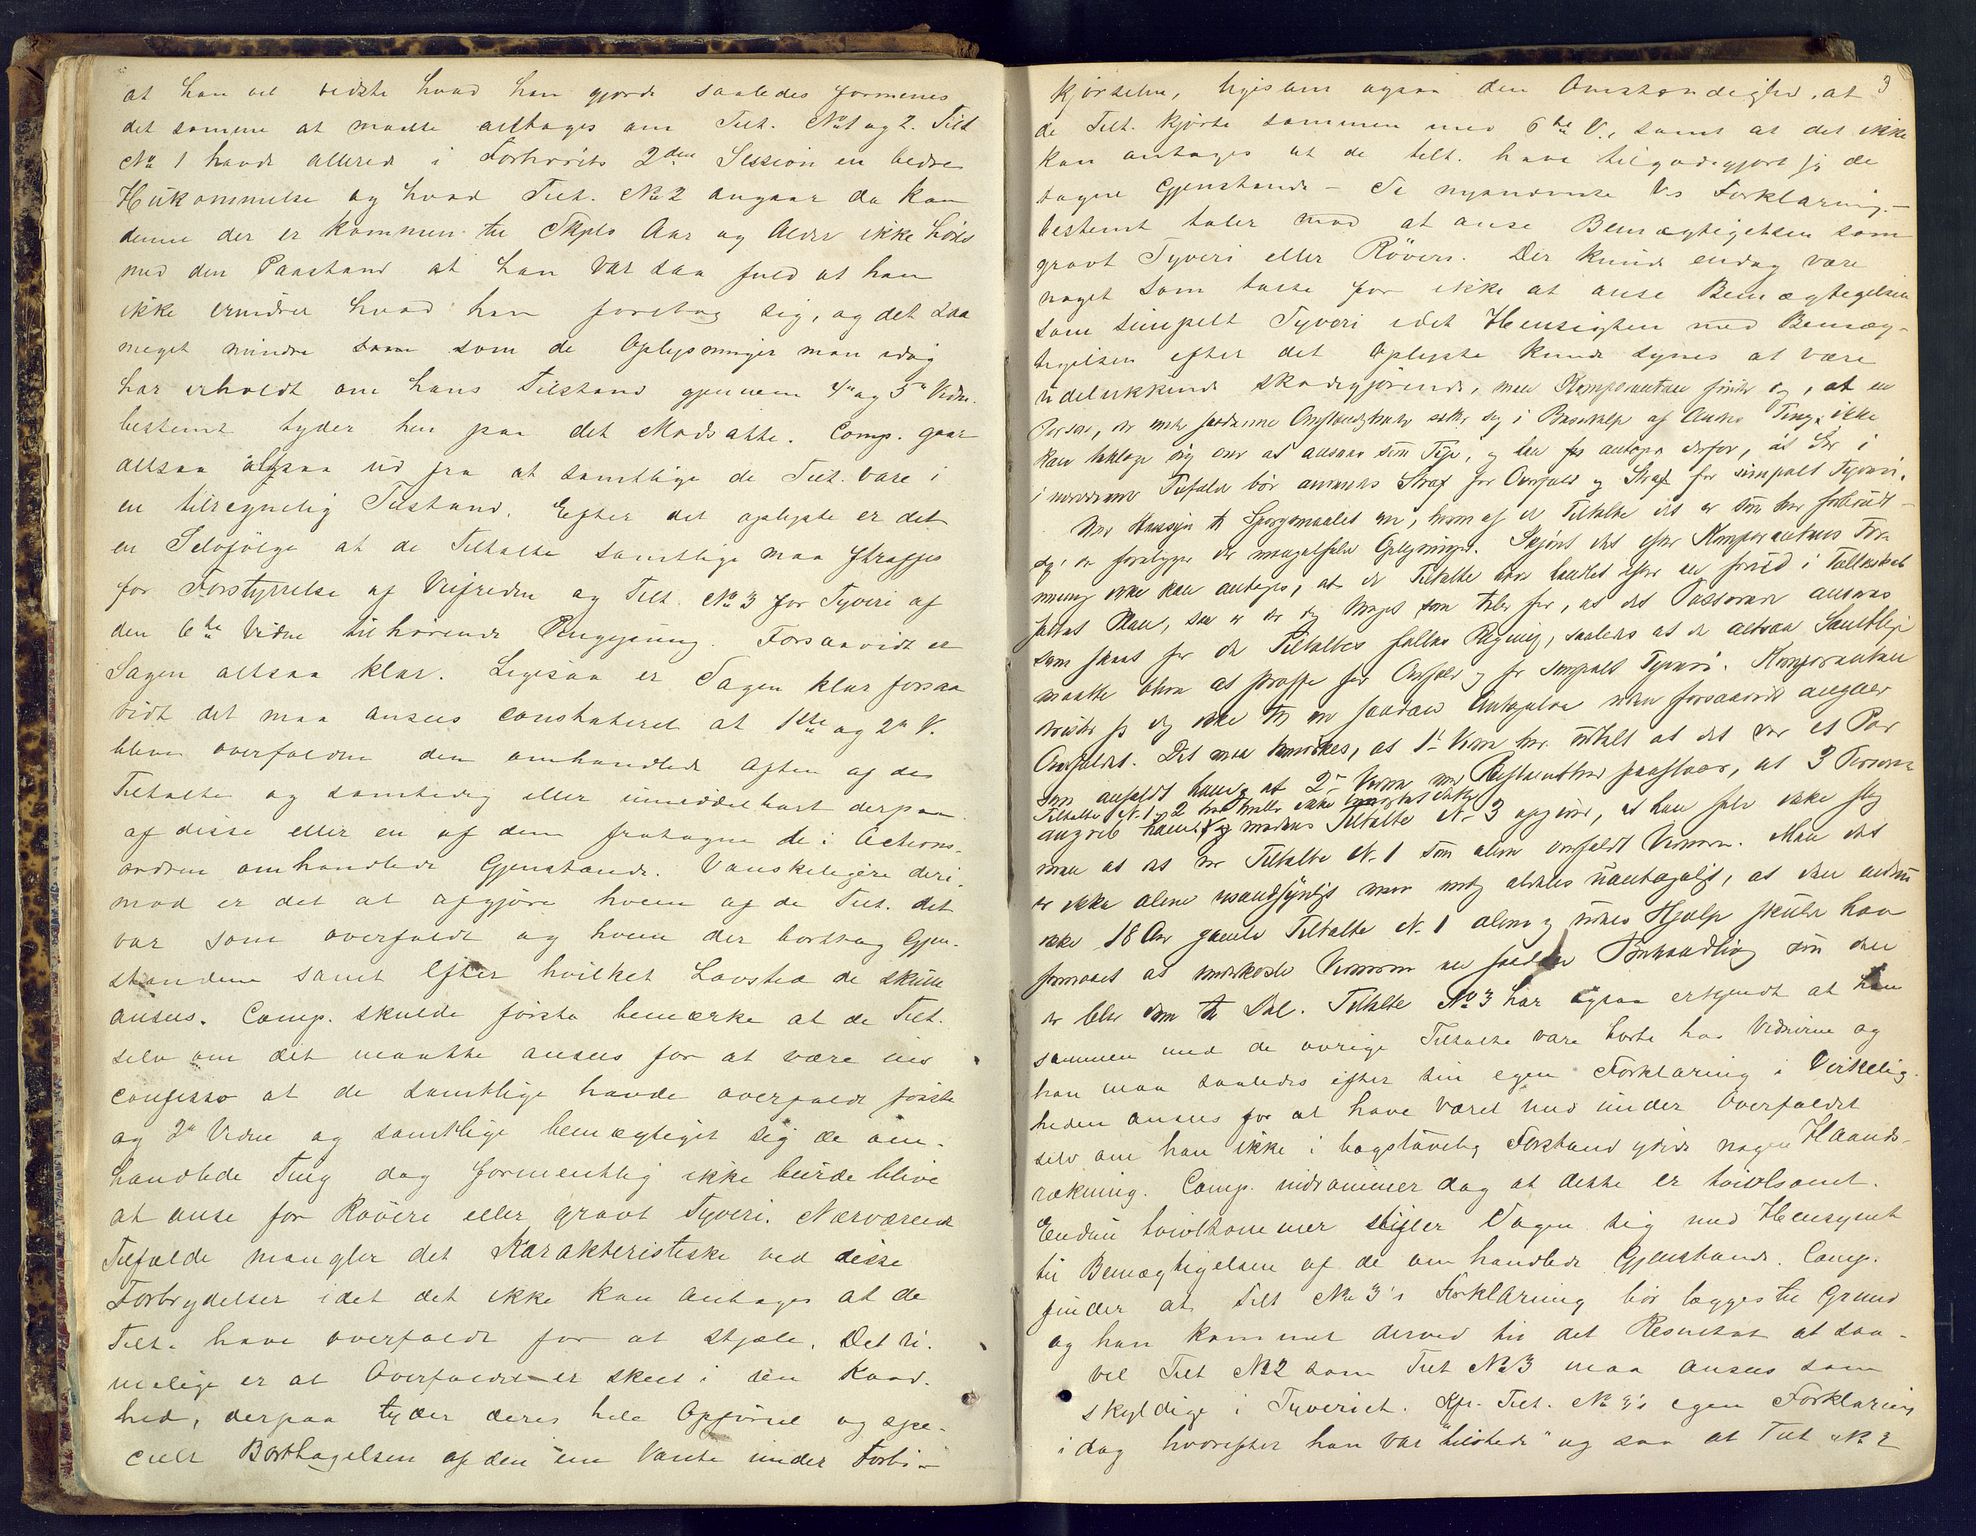 at han vel vidste hvad han gjorde saaledes formenes
det samme at maatte antages om Tilt. No 1 og 2. Tilt
No 1 havde allerede i Forhørets 2den Session en bedre
Hukommelse og hvad Tilt. No 2 angaar da kan
denne der er kommen til Skjels Aar og Alder ikke høres
med den Paastand at han var saa fuld at han
ikke erindrer hvad han foretog sig, og det saa
meget mindre som de Oplysninger man idag
har erholdt om hans Tilstand gjennem 4de og 5te Vidne
bestemt tyder hen paa det Modsatte. Comp. gaar
altsaa ud fra at samtlige de Tilt. vare i
en tilregnelig Tilstand. Efter det oplyste er det
en Selvfølge at de Tiltalte samtlige maa straffes
for Forstyrrelse af Veifreden og Tilt. No 3 for Tyveri af
den 6te Vidne tilhørende Pengepung. Forsaavidt er
Sagen altsaa klar. Ligesaa er Sagen klar forsaa
vidt det maa ansees constateret at 1ste og 2det V.
bleve overfaldne den omhandlede Aften af de
Tiltalte og samtidig eller umiddelbart derpaa
af disse eller en af dem fratagne de i Actions-
ordren omhandlede Gjenstande. Vanskeligere deri-
mod er det at afgjøre hvem af de Tilt. det
var som overfaldt og hvem der borttog Gjen-
standene samt efter hvilket Lovsted de skulle
ansees. Comp. skulde først bemærke at de Tilt.
selv om det maatte ansees for at være in
confesso at de samtlige havde overfaldt første
og 2det Vidne og samtlige bemægtiget sig de om-
handlede Ting dog formentlig ikke burde blive
at anse for Røvere eller grovt Tyveri. Nærværende
Tilfælde mangler det Karakteristiske ved disse
Forbrydelser idet det ikke kan antages at de
Tilt. have overfaldt for at stjæle. Det ri-
melige er at Overfaldet er skeet i den Kaad-
hed, derpaa tyder deres hele Opførsel og spe-
cielt Borttagelsen af den ene Vante under Forbi-
3
kjørselen, ligesom ogsaa den Omstændighed, at
de Tilt. kjørte sammen med 6te V., samt at det ikke
kan antages at de Tilt. have tilgodegjort sig de
tagne Gjenstande - de nysnævnte Vs Forklaring -
bestemt taler mod at anse Bemægtigelsen som
grovt Tyveri eller Røveri. Der kunde endog være
noget som talte for ikke at anse Bemægtigelsen
som simpelt Tyveri idet Hensigten med Bemæg-
tigelsen efter det oplyste kunde synes at være
udelukkende skadegjørende, men Komparenten finder dog, at en
Person, der under saadanne Omstændigheder sætter sig i Besiddelse af Andres Ting, ikke
kan beklage sig over at ansees som Tyv, og han antager derfor, at der i
nærværende Tilfælde bør anvendes Straf for Overfald og Straf for simpelt Tyveri.
Med Hensyn til Spørgsmaalet om, hvem af de Tiltalte det er som har forbrudt
sig, da foreligger der mangelfulde Oplysninger. Skjønt det efter Komparentens For-
mening ikke kan antages, at de Tiltalte have handlet efter en forud i Fællesskab
fattet Plan, saa er der dog Meget som taler for, at det Passerede ansees
som skeet for de Tiltaltes fælles Regning, saaledes at de altsaa samtlige
maatte blive at straffe for Overfald og for simpelt Tyveri. Komparenten
 dog ikke til en saadan Antagelse uden forsaavidt angaar
Overfaldet. Det maa bemærkes, at 1ste Vidne har udtalt at det var et Par
som anfaldt ham og at 2det Vidne med Bestemthed paastaar, at 3 Personer
Tiltalte No 1 og 2 ikke
angreb ham og medens Tiltalte No 3 opgiver, at han selv ikke slog
men at det var Tiltalte No 1 som alene overfaldt Vidnerne. Men det
er ikke alene usandsynligt men endog aldeles uantageligt, at den endnu
ikke 18 Aar gamle Tiltalte No 1 alene og uden Hjælp skulde have
formaaet at underkaste Vidnerne en saadan Behandling som den
der blev dem til Del. Tiltalte No 3 har ogsaa erkjendt at han
sammen med de øvrige Tiltalte vare borte hos Vidnerne og
han maa saaledes efter sin egen Forklaring i Virkelig-
heden ansees for at have været med under Overfaldet
selv om han ikke i bogstavelig Forstand ydede nogen Haands-
rækning. Comp. indrømmer dog at dette er tvivlsomt.
Endnu tvivlsommere stiller Sagen sig med Hensynet
til Bemægtigelsen af de omhandlede Gjenstande. Comp.
finder at Tilt No 3's Forklaring bør lægges til Grund
og han kommer derved til det Resultat at saa-
vel Tilt No 2 som Tilt No 3 maa ansees som
skyldige i Tyveriet. Kfr. Tilt. No 3's egen Forklaring
i dag hvorefter han var "tilstede" og saa at Tilt No 2